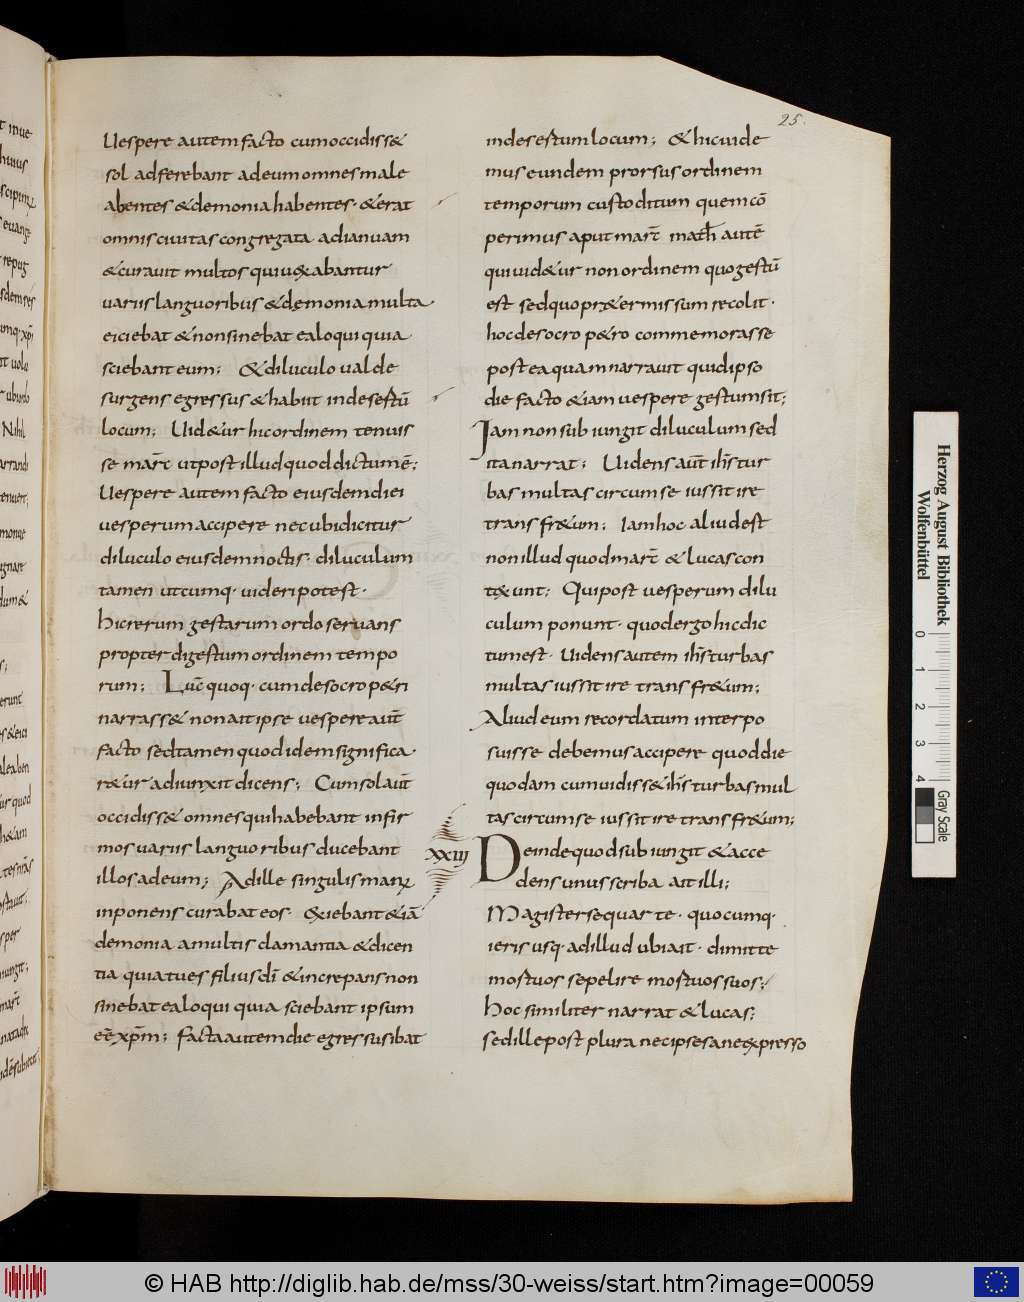 25.
Uespere autem facto cum occidiss&
sol adferebant ad eum omnes male
abentes & demonia habentes· & erat
omnis ciuitas congregata ad ianuam
& curauit multos qui uexabantur
uariis languoribus & demonia multa
eiciebat & non sinebat ea loqui quia
sciebant eum; & diluculo ualde
surgens egressus & habiit in desertū
locum; Uid&ur hic ordinem tenuis
se marc̄ ut post illud quod dictum ē;
Uespere autem facto eiusdem diei
uesperum accipere nec ubi dicitur
diluculo eiusdem noctis· diluculum
tamen utcumq· uideri potest·
hic rerum gestarum ordo seruans
propter digestum ordinem tempo
rum; Luc̄ quoq· cum de socro p&ri
narrass& non ait ipse uespere aut̄
facto sed tamen quod idem significa
r&ur adiunxit dicens; Cum sol aut̄
occidiss& omnes qui habebant infir
mos uariis languoribus ducebant
illos ad eum; Ad ille singulis manꝰ
inponens curabat eos· Exiebant & iā
demonia a multis clamantia & dicen
tia quia tu es filius dī & increpans non
sinebat ea loqui quia sciebant ipsum
eē xp̄m; facta autem die egressus ibat
in desertum locum; & hic uide
mus eundem prorsus ordinem
temporum custoditum quem cō
perimus aput marc̄ math̄ autē
qui uid&ur non ordinem quo gestū
est sed quo pr&ermissum recolit·
hoc de socro p&ro commemorasse
postea quam narrauit quid ipso
die facto & iam uespere gestum sit;
Iam non subiungit diluculum sed
ita narrat; Uidens aut̄ ih̄s tur
bas multas circum se iussit ire
trans fr&um; Iam hoc aliud est
non illud quod marc̄ & lucas con
t&unt; Qui post uesperum dilu
culum ponunt· quod ergo hic dic
tum est· Uidens autem ih̄s turbas
multas iussit ire trans fr&um;
Aliud eum recordatum interpo
suisse debemus accipere quod die
quodam cum uidiss& ih̄s turbas mul
tas circum se iussit ire trans fr&um;
xxiii Deinde quod subiungit & acce
dens unus scriba ait illi;
Magister sequar te· quocumq·
ieris usq· ad illud ubi ait· dimitte
mortuos sepelire mortuos suos;
hoc similiter narrat & lucas;
sed ille post plura nec ipse sane expresso
Herzog August Bibliothek
Wolfenbüttel
0 1 2 3 4
Gray Scale
© HAB http://diglib.hab.de/mss/30-weiss/start.htm?image=00059